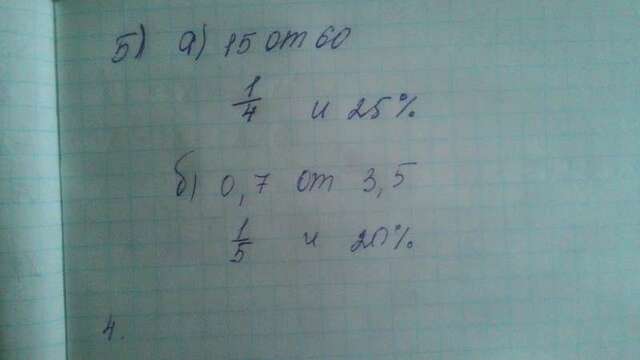 5) а) 15 от 60
1/4 и 25%
б) 0,7 от 3,5
1/5 и 20%
4.